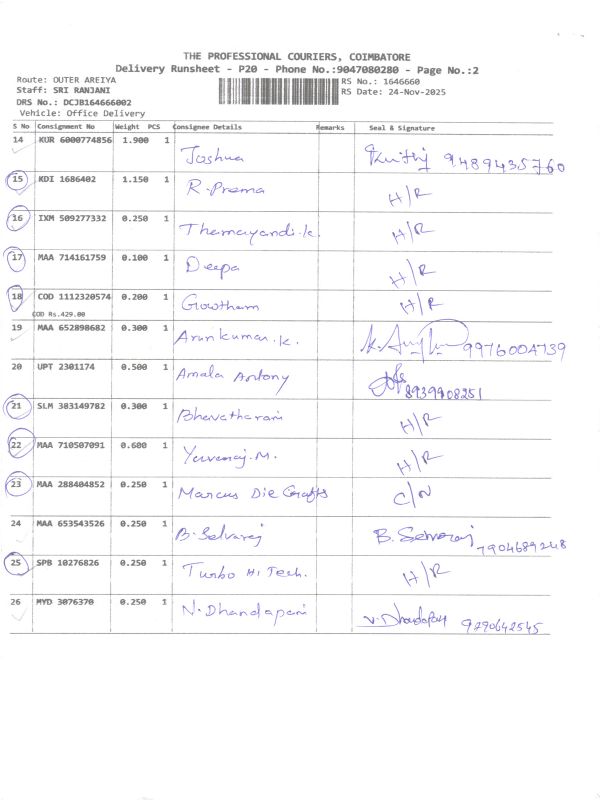 THE PROFESSIONAL COURIERS, COIMBATORE
Delivery Runsheet - P20 - Phone No.:9047080280 - Page No.:2
Route: OUTER AREIYA
RS No.: 1646660
Staff: SRI RANJANI
RS Date: 24-Nov-2025
DRS No.: DCJB164666002
Vehicle: Office Delivery
S No Consignment No Weight PCS Consignee Details Remarks Seal & Signature
14 KUR 6000774856 1.900 1 Joshua 9489435760
15 KDI 1686402 1.150 1 R. Prema H/R
16 IXM 509277332 0.250 1 Thamayandi.k. H/R
17 MAA 714161759 0.100 1 Deepa H/R
18 COD 1112320574 0.200 1 Gowtham H/R
COD Rs.429.00
19 MAA 652898682 0.300 1 Arunkumar.k. 9976004739
20 UPT 2301174 0.500 1 Amala Antony 8939908251
21 SLM 383149782 0.300 1 Bhavatharani H/R
22 MAA 710507091 0.600 1 Yuvaraj.M. H/R
23 MAA 288404852 0.250 1 Marcus Die Crafts C/N
24 MAA 653543526 0.250 1 B. Selvaraj B. Selvaraj 7904689248
25 SPB 10276826 0.250 1 Turbo Hi Tech. H/R
26 MYD 3076370 0.250 1 N. Dhandapani N. Dhandapani 9290642545